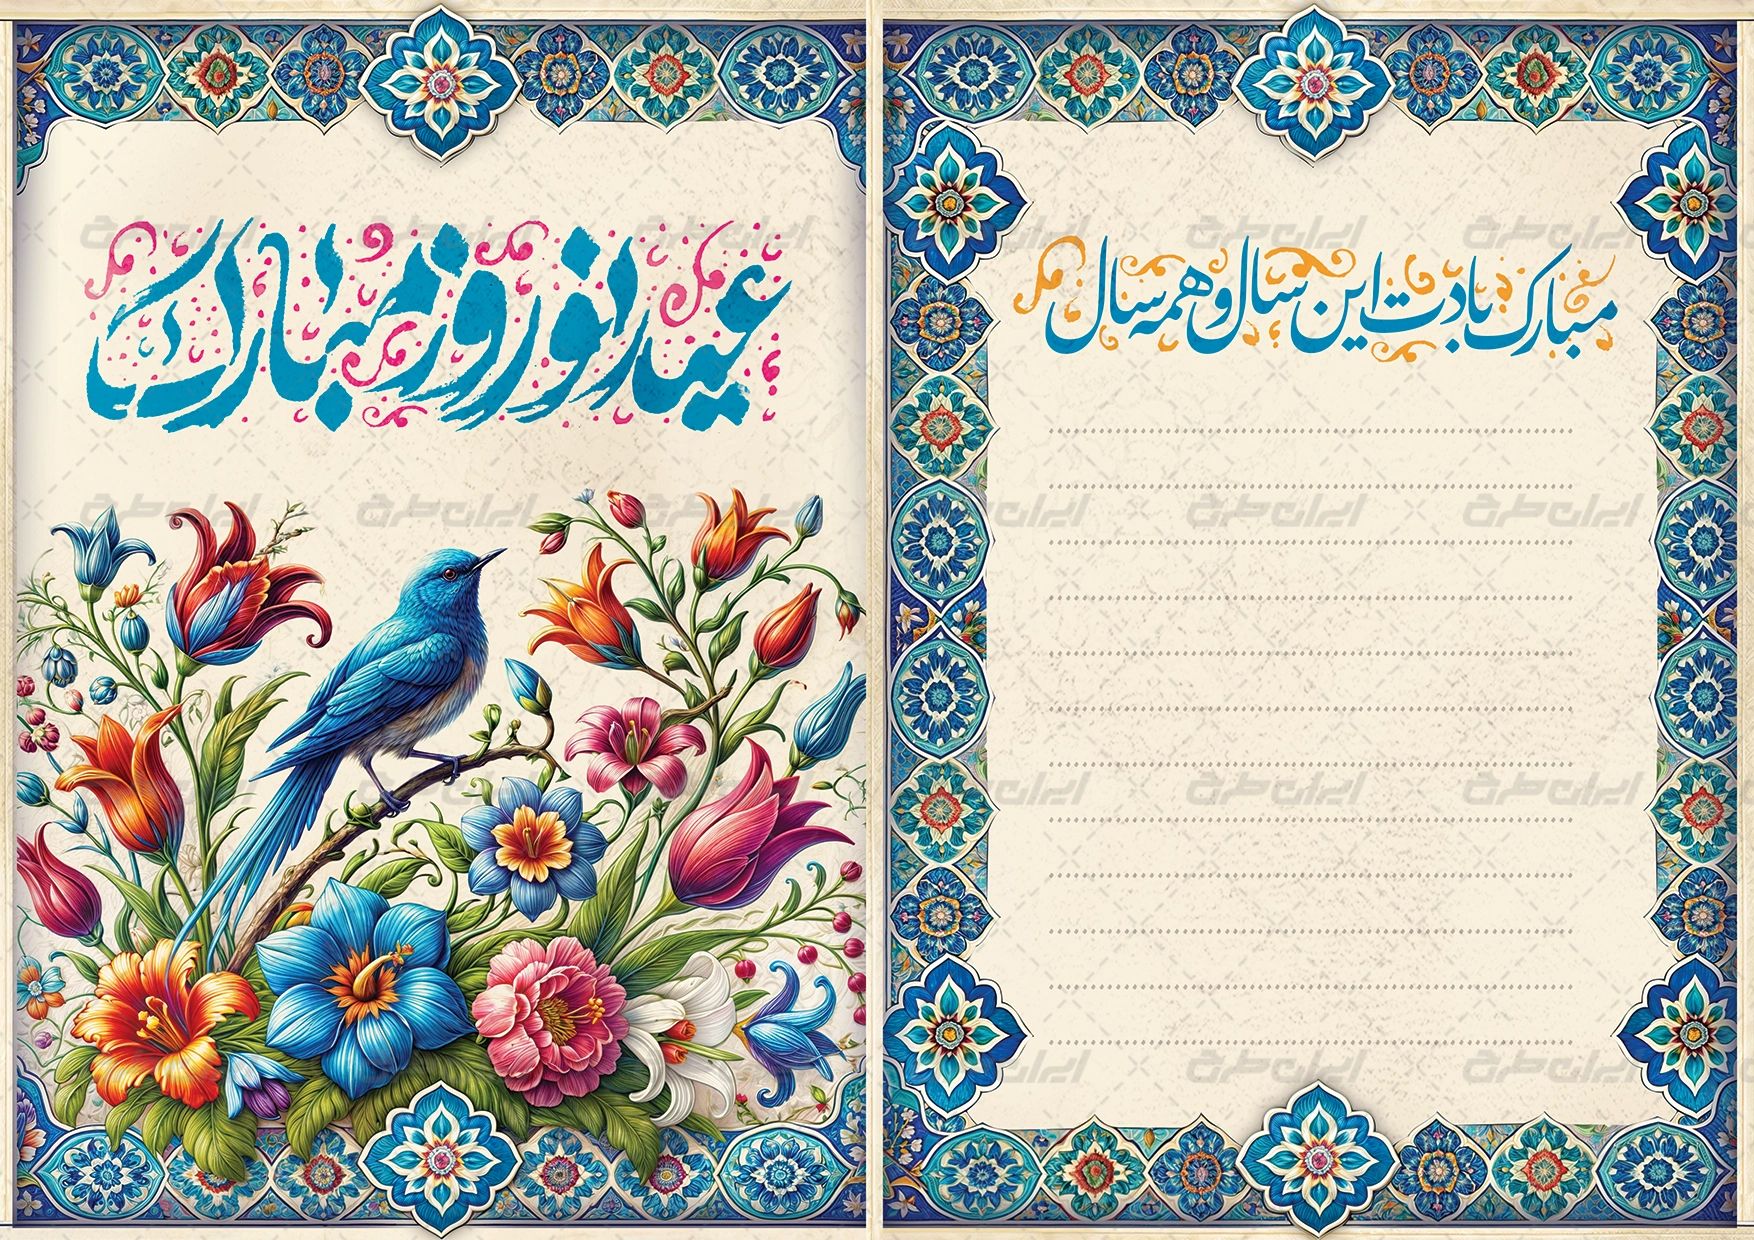 عید نوروز مبارک
مبارک بادت این سال و همه سال
ایران طرح